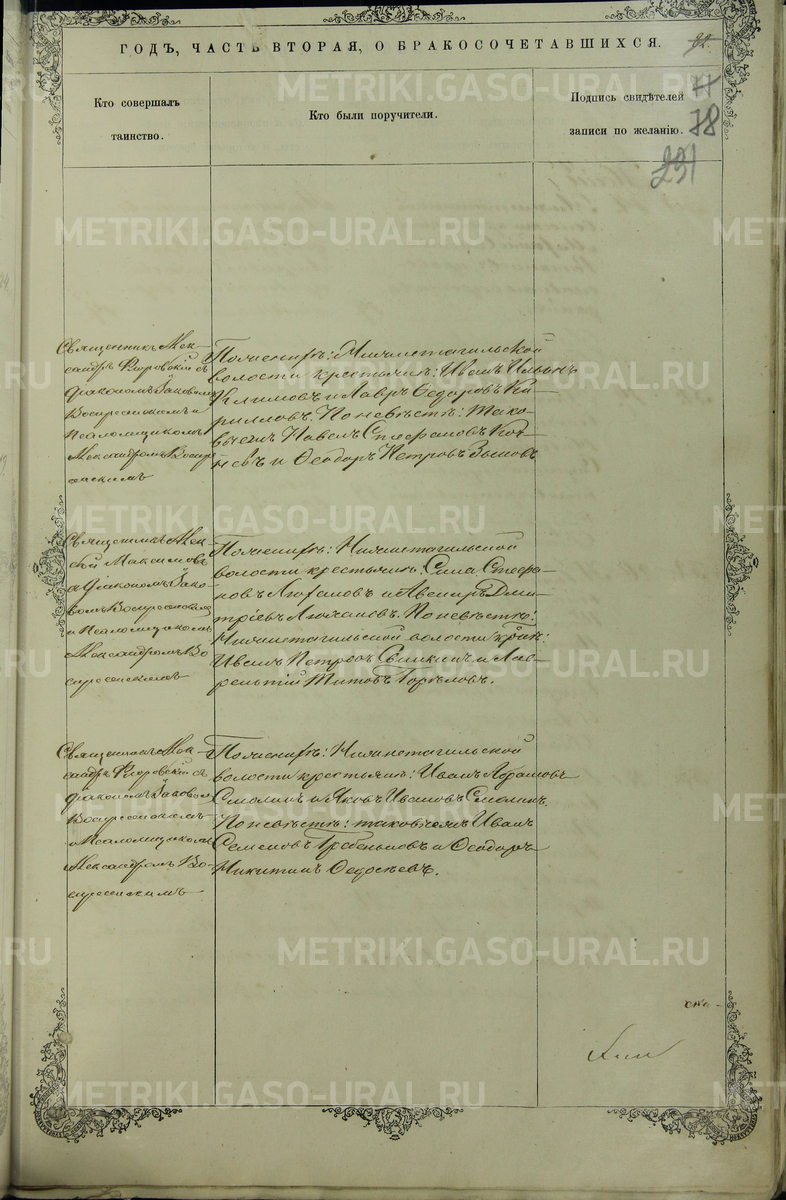 ГОДЪ, ЧАСТЬ ВТОРАЯ, О БРАКОСОЧЕТАВШИХСЯ.
Кто совершалъ
таинство.
Кто были поручители.
Подпись свидѣтелей
записи по желанію.
78
231
Священникъ Алек-
сандръ Флоровскій съ
діакономъ Іаковомъ
Воскресенскимъ и
Псаломщикомъ
Александромъ Воскре-
сенскимъ
По женихѣ: Нижнетагильской
волости крестьяне: Иванъ Ильинъ
Климовъ и Лавръ Ѳедоровъ Ки-
рилловъ. По невѣстѣ: тако-
вые же Павелъ Стефановъ
и Ѳеодоръ Петровъ Зыковъ
Священникъ Алек-
сѣй Максимовъ
съ діакономъ Іако-
вомъ Воскресенскимъ
и Псаломщикомъ
Александромъ Во-
скресенскимъ
По женихѣ: Нижнетагильской
волости крестьяне: Сила Стефа-
новъ и Авениръ Дми-
тріевъ. По невѣстѣ:
Нижнетагильской волости крест:
Иванъ Петровъ и Лав-
рентій Титовъ Горѣловъ.
Священникъ Алек-
сандръ Флоровскій съ
діакономъ Іаковомъ
Воскресенскимъ
и Псаломщикомъ
Александромъ Во-
скресенскимъ
По женихѣ: Нижнетагильской
волости крестьяне: Иванъ Абрамовъ
Смолинъ и Яковъ Ивановъ Смолинъ.
По невѣстѣ: таковые же Иванъ
Семеновъ Гребеньковъ и Ѳеодоръ
Никитинъ Ѳедосѣевъ.
METRIKI.GASO-URAL.RU